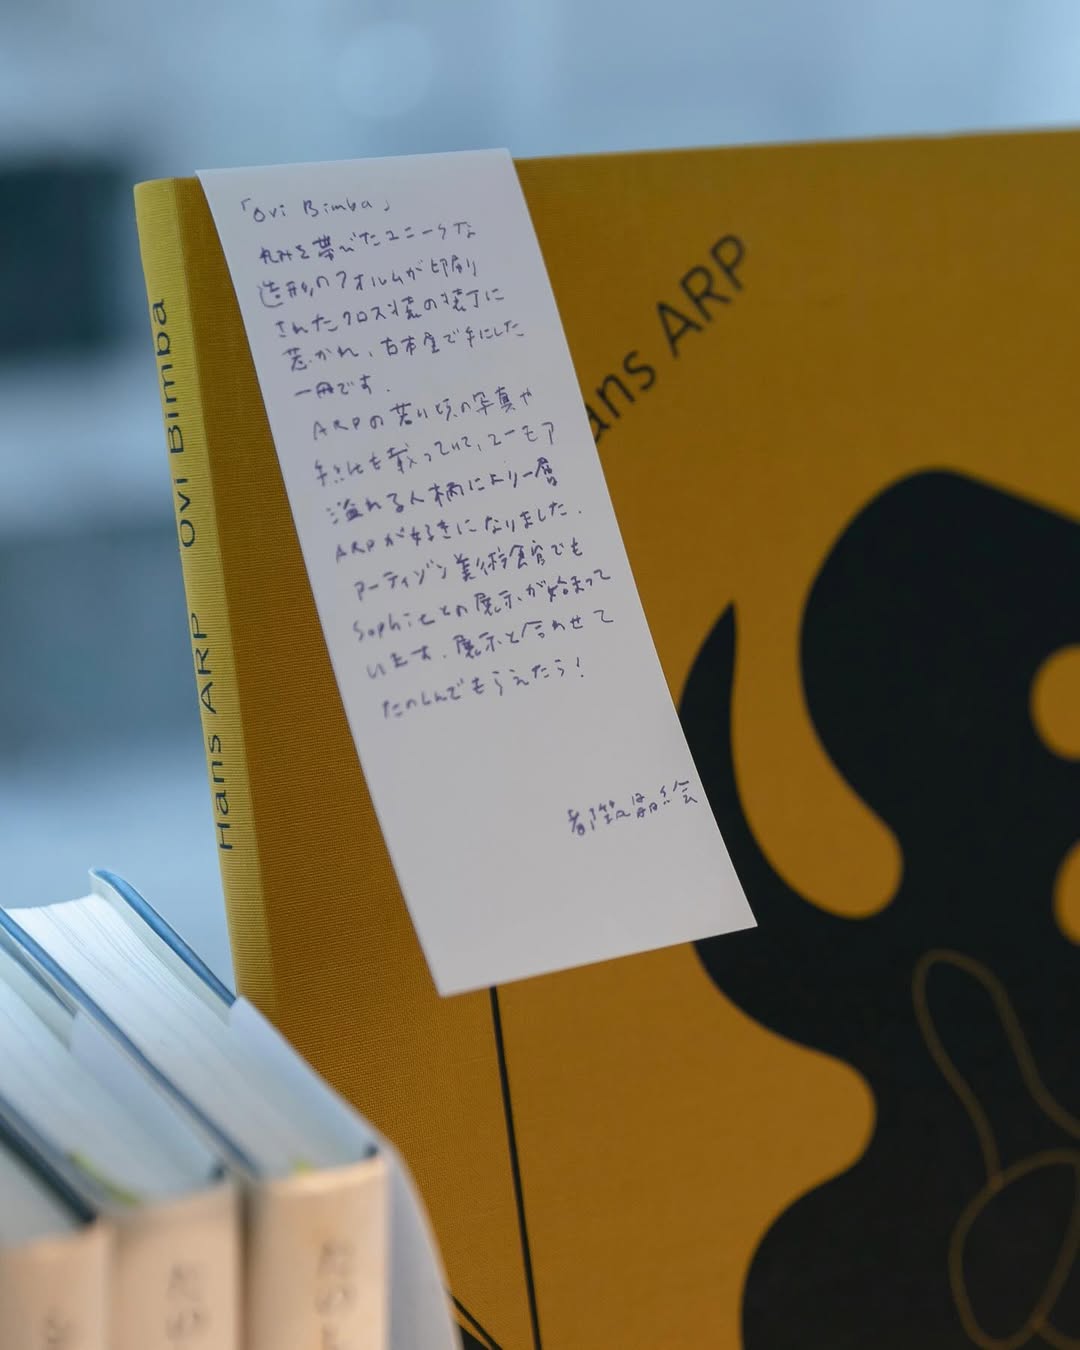 「Ovi Bimba」
丸みを帯びたユニークな
造形のフォルムが印刷
されたクロス装の装丁に
惹かれ、古本屋で手にした
一冊です.
ARPの若い頃の写真や
手紙も載っていて、ユーモア
溢れる人柄により一層
ARPが好きになりました.
アーティゾン美術館でも
Sophieとの展示が始まって
います. 展示と合わせて
たのしんでもらえたら!
都筑晶絵
Hans ARP Ovi Bimba
ans ARP